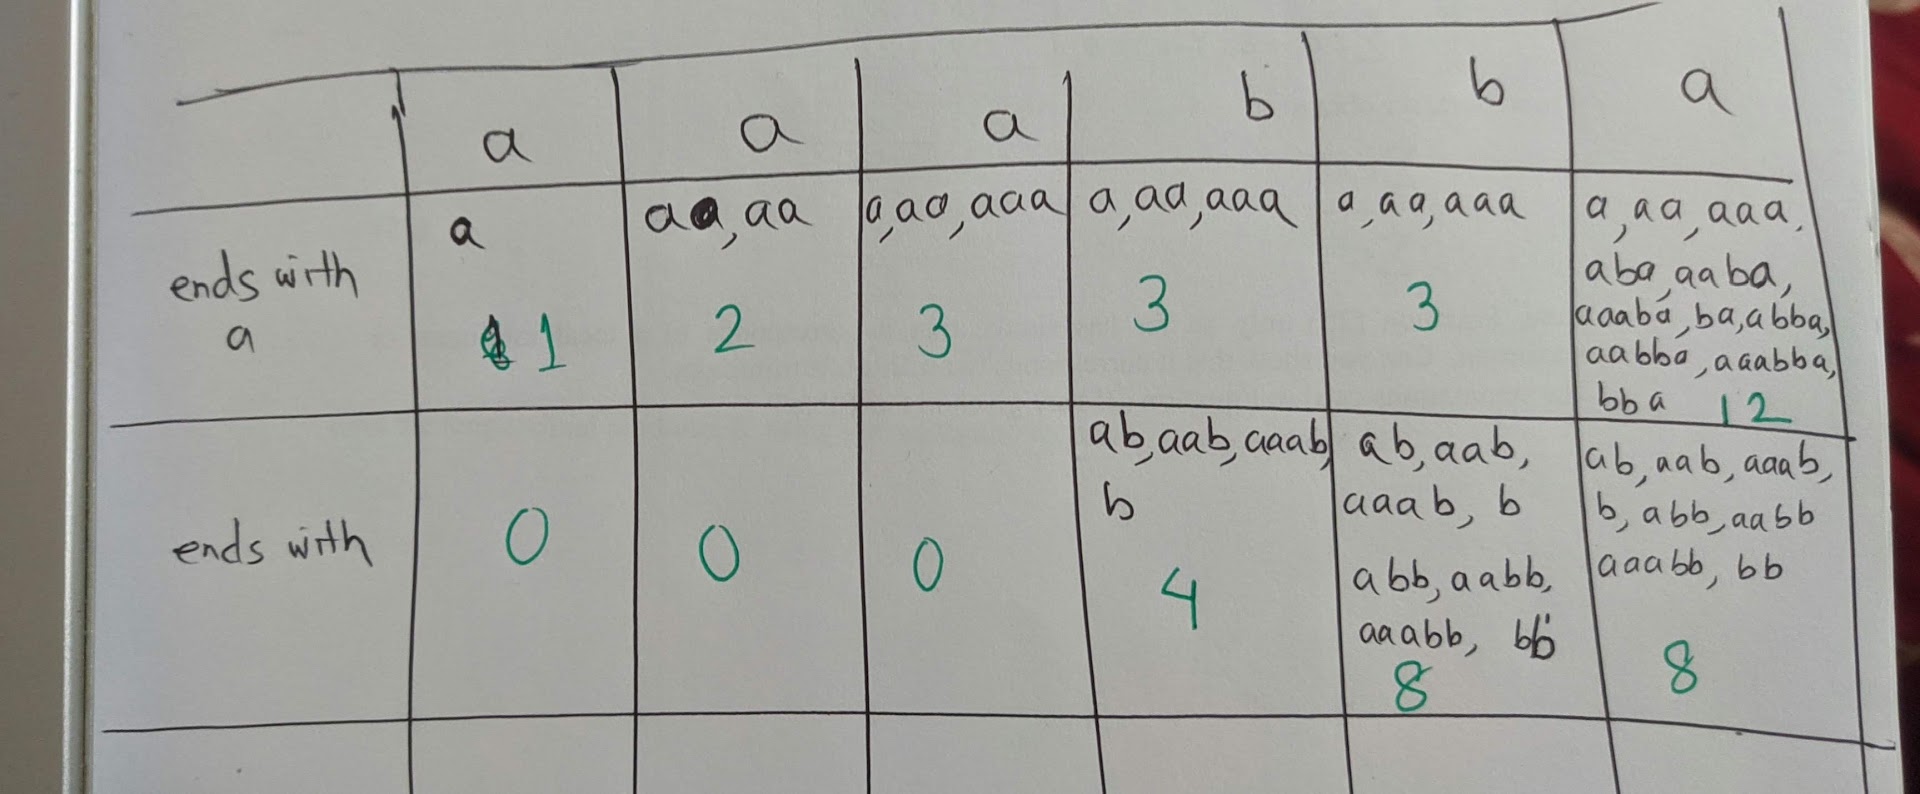 a a a b b a
ends with
a
a
1
aa, aa
2
a, aa, aaa
3
a, aa, aaa
3
a, aa, aaa
3
a, aa, aaa,
aba, aaba,
aaaba, ba, abba,
aabba, aaabba,
bba 12
ends with
0
0
0
ab, aab, aaab,
b
4
ab, aab,
aaab, b
abb, aabb,
aaabb, bb
8
ab, aab, aaab,
b, abb, aabb
aaabb, bb
8